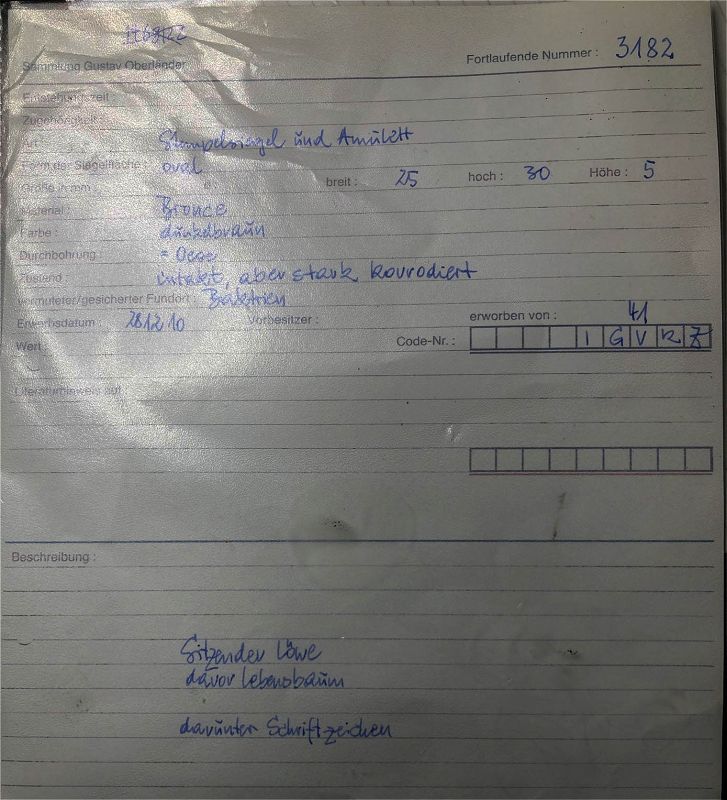 Sammlung Gustav Oberländer
Fortlaufende Nummer : 3182
Entstehungszeit :
Zugehörigkeit :
Art : Stempelsiegel und Amulett
Form der Siegelfläche : oval
Größe in mm breit : 25 hoch : 30 Höhe : 5
Material : Bronce
Farbe : dunkelbraun
Durchbohrung : = Oese
Zustand : intakt, aber stark korrodiert
vermuteter/gesicherter Fundort : Baktrien
Erwerbsdatum : 28 12 10 Vorbesitzer : erworben von : 41
Wert : Code-Nr. : I G V K Z
Literaturhinweis auf
Beschreibung :
Sitzender Löwe
davor Lebensbaum
darunter Schriftzeichen